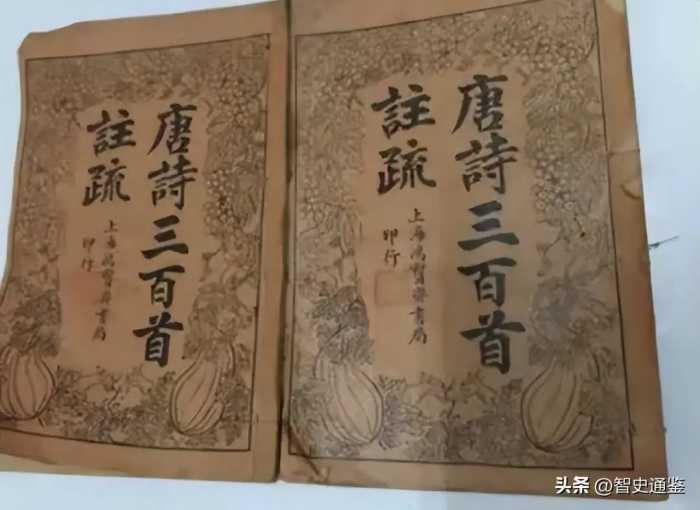 唐詩三百首
註疏
上海鴻寶齋書局
印行
唐詩三百首
註疏
上海鴻寶齋書局
印行
头条 @智史通鉴